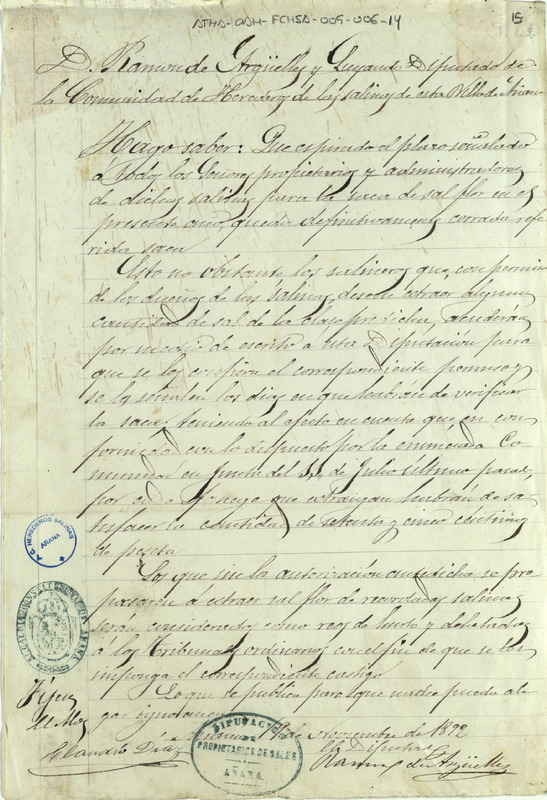 ATHA-DAH-FCHSA-005-006-14
15
D. Ramon de Argüelles y Luyando Diputado de
la Comunidad de Herederos de las salinas de esta Villa de Añana
Hago saber: Que espirado el plazo señalado
a todos los Señores propietarios y administradores
de dichas salinas para la saca de sal flor en el
presente año, queda definitivamente cerrada refe
rida saca
Esto no obstante los salineros que, con permiso
de los dueños de las Salinas, deseen estraer alguna
cantidad de sal de la clase predicha, acudiran
por medio de escrito a esta Diputación para
que se les confiera el correspondiente permiso y
se les señalen los dias en que habrán de verificar
la saca, teniendo al efecto en cuenta que en con
formidad con lo dispuesto por la enunciada Co
munidad en Junta del 11 de Julio último pasado,
por cada fanega que estraigan habrán de sa
tisfacer la cantidad de setenta y cinco céntimos
de peseta
Los que sin la autorización antedicha se pro
pasaren á estraer sal flor de recordadas salinas
serán considerados como reos de hurto y delatados
a los Tribunales ordinarios con el fin de que se les
imponga el correspondiente castigo
Lo que se publica para que nadie pueda ale
gar ignorancia
Añana 17 de Noviembre de 1892
El Diputado
Ramon de Argüelles
Fijese
El Alc
Claudio Díaz
C. HEREDEROS SALINAS
AÑANA
DIPUTACION
DE
PROPIETARIOS DE SALES
AÑANA